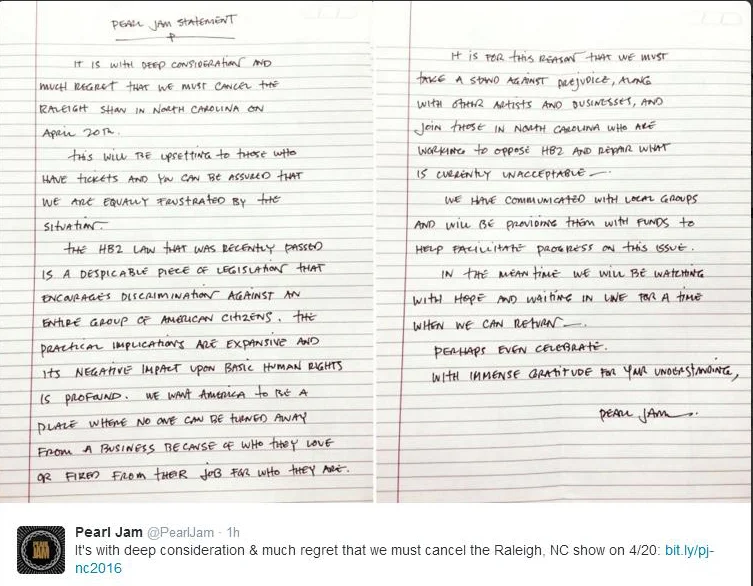 PEARL JAM STATEMENT
IT IS WITH DEEP CONSIDERATION AND
MUCH REGRET THAT WE MUST CANCEL THE
RALEIGH SHOW IN NORTH CAROLINA ON
APRIL 20TH.
THIS WILL BE UPSETTING TO THOSE WHO
HAVE TICKETS AND YOU CAN BE ASSURED THAT
WE ARE EQUALLY FRUSTRATED BY THE
SITUATION.
THE HB2 LAW THAT WAS RECENTLY PASSED
IS A DESPICABLE PIECE OF LEGISLATION THAT
ENCOURAGES DISCRIMINATION AGAINST AN
ENTIRE GROUP OF AMERICAN CITIZENS. THE
PRACTICAL IMPLICATIONS ARE EXPANSIVE AND
ITS NEGATIVE IMPACT UPON BASIC HUMAN RIGHTS
IS PROFOUND. WE WANT AMERICA TO BE A
PLACE WHERE NO ONE CAN BE TURNED AWAY
FROM A BUSINESS BECAUSE OF WHO THEY LOVE
OR FIRED FROM THEIR JOB FOR WHO THEY ARE.
IT IS FOR THIS REASON THAT WE MUST
TAKE A STAND AGAINST PREJUDICE, ALONG
WITH OTHER ARTISTS AND BUSINESSES, AND
JOIN THOSE IN NORTH CAROLINA WHO ARE
WORKING TO OPPOSE HB2 AND REPAIR WHAT
IS CURRENTLY UNACCEPTABLE.
WE HAVE COMMUNICATED WITH LOCAL GROUPS
AND WILL BE PROVIDING THEM WITH FUNDS TO
HELP FACILITATE PROGRESS ON THIS ISSUE.
IN THE MEAN TIME WE WILL BE WATCHING
WITH HOPE AND WAITING IN LINE FOR A TIME
WHEN WE CAN RETURN.
PERHAPS EVEN CELEBRATE.
WITH IMMENSE GRATITUDE FOR YOUR UNDERSTANDING,
PEARL JAM.
PEARL JAM
Pearl Jam @PearlJam · 1h
It's with deep consideration & much regret that we must cancel the Raleigh, NC show on 4/20: bit.ly/pj-
nc2016